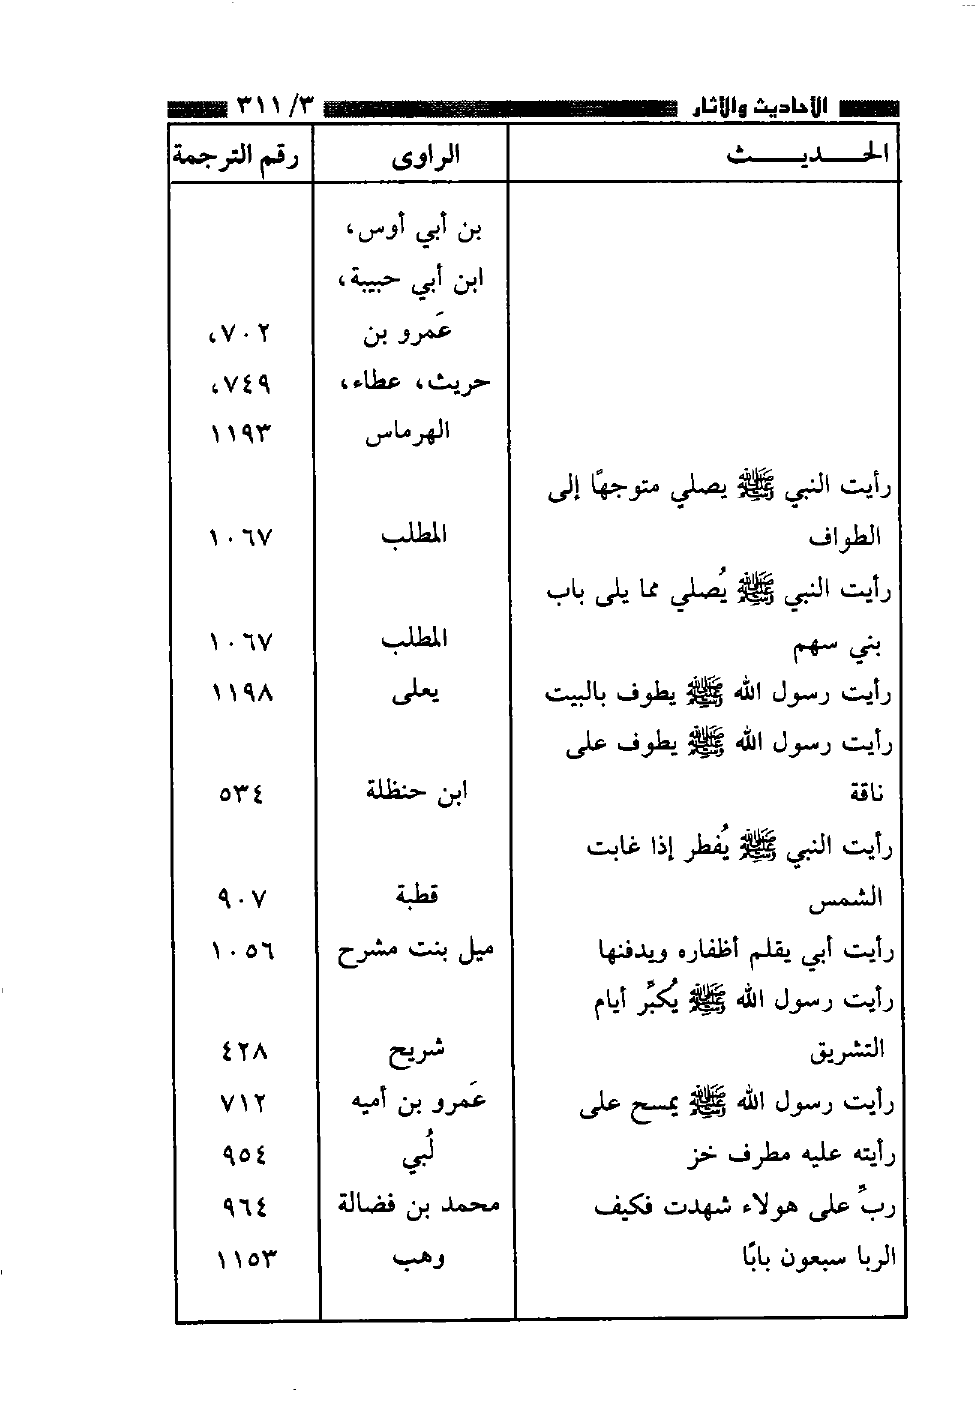 الأحاديث والآثار ٣/ ٣١١
الحـــديـــــث الراوى رقم الترجمة
بن أبي أوس،
ابن أبي حبيبة،
عَمرو بن ٧٠٢،
حريث، عطاء، ٧٤٩،
الهرماس ١١٩٣
رأيت النبي ﷺ يصلي متوجهًا إلى
الطواف المطلب ١٠٦٧
رأيت النبي ﷺ يُصلي مما يلى باب
بني سهم المطلب ١٠٦٧
رأيت رسول الله ﷺ يطوف بالبيت يعلى ١١٩٨
رأيت رسول الله ﷺ يطوف على
ناقة ابن حنظلة ٥٣٤
رأيت النبي ﷺ يُفطر إذا غابت
الشمس قطبة ٩٠٧
رأيت أبي يقلم أظفاره ويدفنها ميل بنت مشرح ١٠٥٦
رأيت رسول الله ﷺ يُكبِّر أيام
التشريق شريح ٤٢٨
رأيت رسول الله ﷺ يمسح على عَمرو بن أميه ٧١٢
رأيته عليه مطرف خز لُبي ٩٥٤
ربِّ على هولاء شهدت فكيف محمد بن فضالة ٩٦٤
الربا سبعون بابًا وهب ١١٥٣